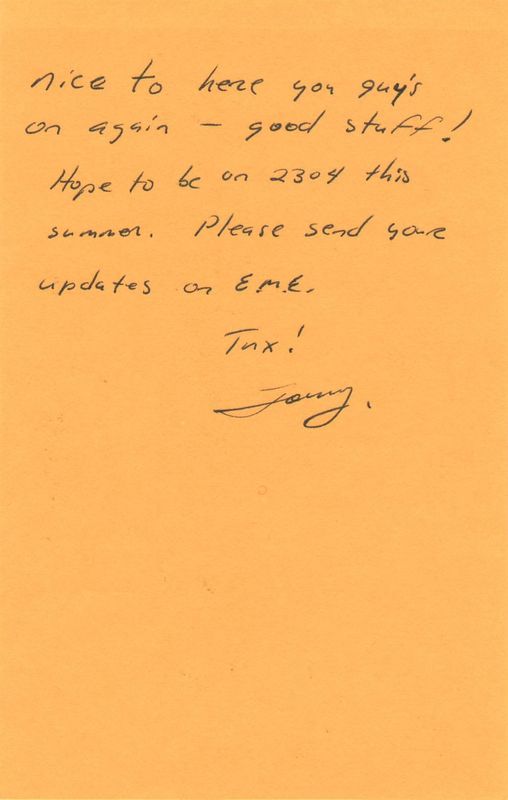 nice to here you guy's
on again – good stuff!
Hope to be on 2304 this
summer. Please send your
updates on E.M.E.
Tnx!